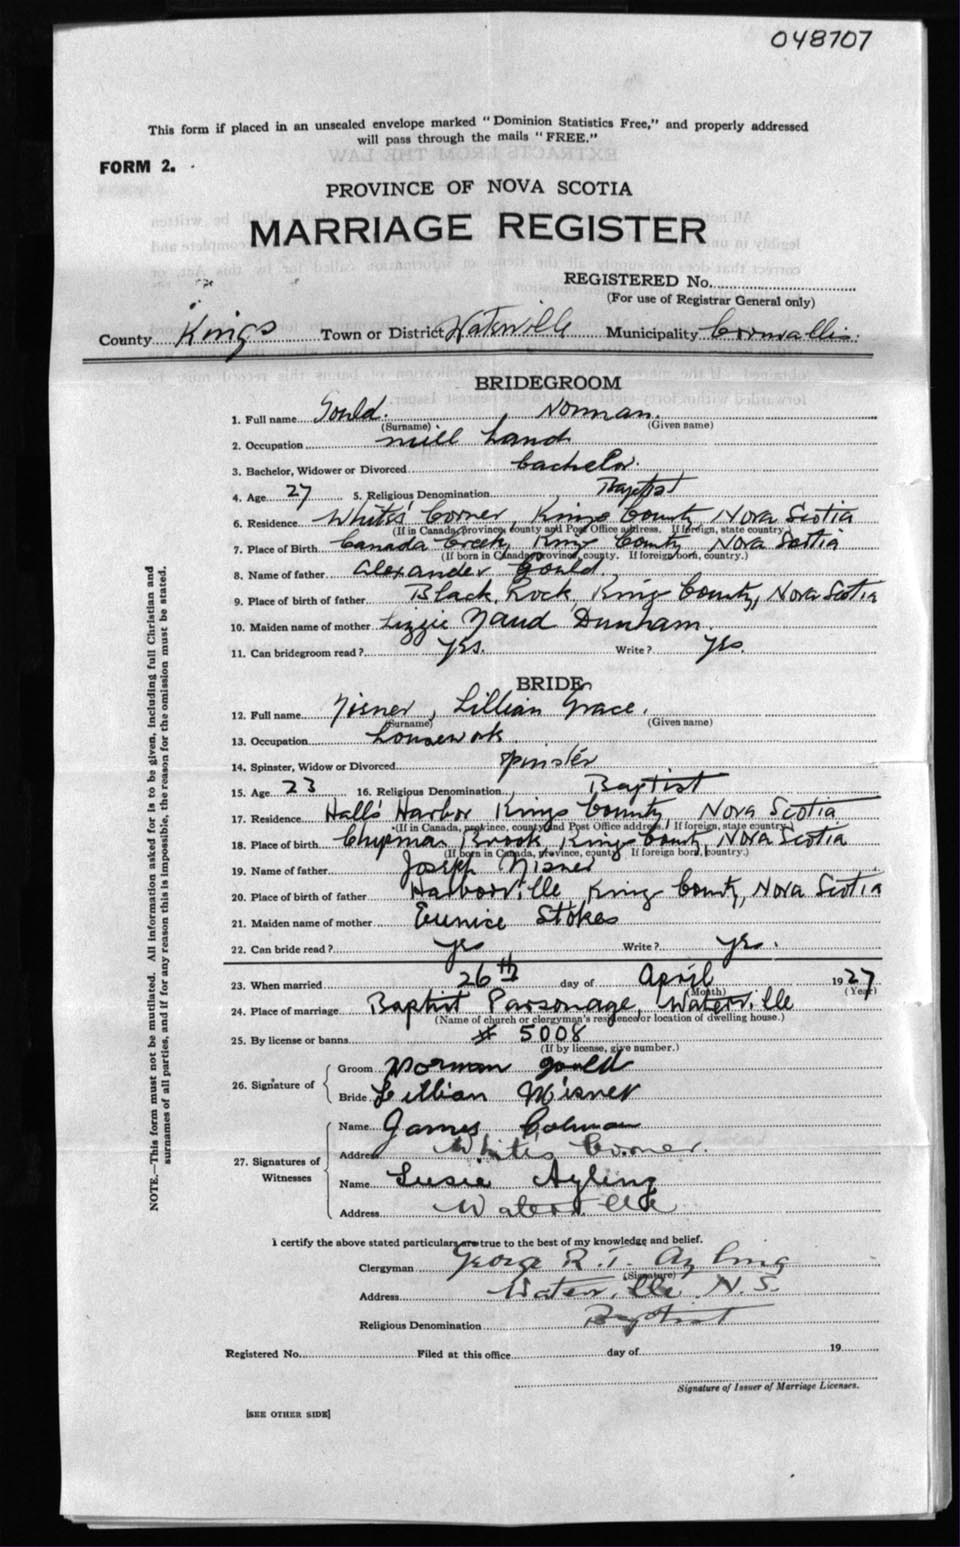 048707
This form if placed in an unsealed envelope marked "Dominion Statistics Free," and properly addressed
will pass through the mails "FREE."
FORM 2.
PROVINCE OF NOVA SCOTIA
MARRIAGE REGISTER
REGISTERED No.
(For use of Registrar General only)
County Kings Town or District Waterville Municipality Cornwallis.
BRIDEGROOM
1. Full name Gould. , Norman.
(Surname) (Given name)
2. Occupation mill hand
3. Bachelor, Widower or Divorced bachelor.
4. Age 27 5. Religious Denomination Baptist
6. Residence White's Corner, Kings County, Nova Scotia
(If in Canada, province, county and Post Office address. If foreign, state country)
7. Place of Birth Canada Creek, Kings County Nova Scotia
(If born in Canada, province, county. If foreign born, country.)
8. Name of father Alexander Gould,
9. Place of birth of father Black Rock, Kings County, Nova Scotia
10. Maiden name of mother Lizzie Maud Dunham.
11. Can bridegroom read? yes. Write? yes.
BRIDE
12. Full name Misner, Lillian Grace.
(Surname) (Given name)
13. Occupation housework
14. Spinster, Widow or Divorced spinster
15. Age 23 16. Religious Denomination Baptist
17. Residence Hall's Harbor Kings County Nova Scotia
(If in Canada, province, county and Post Office address. If foreign, state country)
18. Place of birth Chipman Brook, Kings County, Nova Scotia
(If born in Canada, province, county. If foreign born, country.)
19. Name of father Joseph Misner
20. Place of birth of father Harborville, Kings County, Nova Scotia
21. Maiden name of mother Eunice Stokes
22. Can bride read? yes Write? yes.
23. When married 26th day of April 1927
(Month) (Year)
24. Place of marriage Baptist Parsonage, Waterville
(Name of church or clergyman's residence or location of dwelling house.)
25. By license or banns # 5008
(If by license, give number.)
26. Signature of Groom Norman Gould
Bride Lillian Misner
27. Signatures of Witnesses Name James Colman
Address White's Corner.
Name Susie Ayling
Address Waterville
I certify the above stated particulars are true to the best of my knowledge and belief.
Clergyman George R. T. Ayling
(Signature)
Address Waterville N.S.
Religious Denomination Baptist
Registered No. Filed at this office day of 19
Signature of Issuer of Marriage Licenses.
[SEE OTHER SIDE]
NOTE.—This form must not be mutilated. All information asked for is to be given, including full Christian and
surnames of all parties, and if for any reason this is impossible, the reason for the omission must be stated.